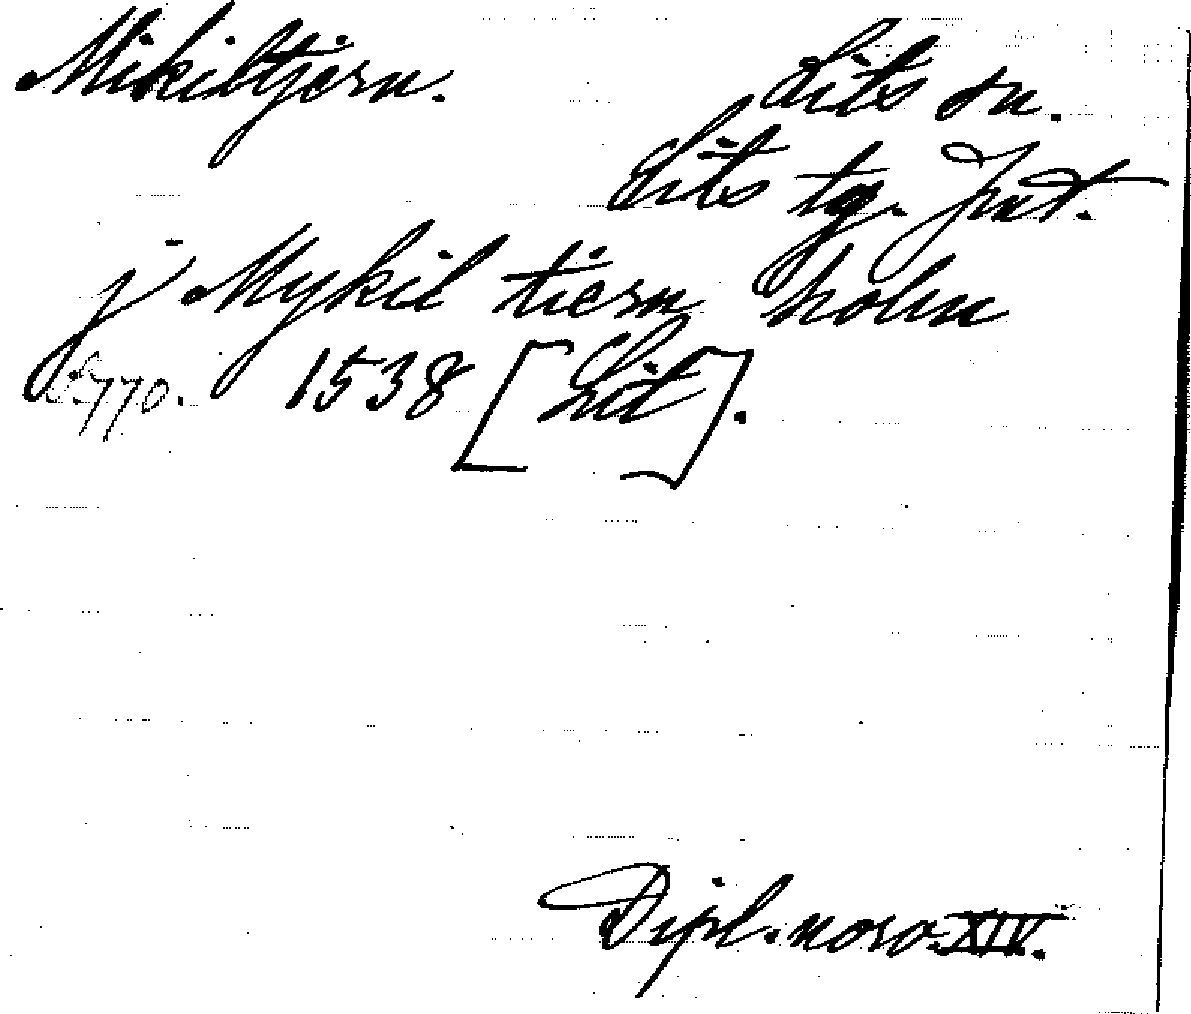 Mikiltjern. Lits sn.
Lits tg. Jmt.
j Mykil tiern holm
S. 770. 1538 [Lit].
Dipl. norv. XIV.